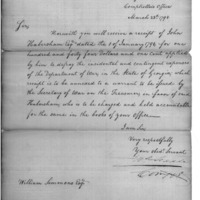 Comptrollers Office
March 28th 179
Sir,
Herewith you will receive a receipt of John
Habersham Esqr dated the 3d of January 1798 for one
hundred and forty four Dollars and ten cents applied
by him to defray the incidental and contingent expenses
of the Department of War in the State of Georgia, which
receipt is to be annexed to a warrant to be drawn by
the Secretary of War on the Treasurer in favor of said
Habersham, who is to be charged and held accountable
for the same in the books of your Office.
I am Sir
Very respectfully
Your Obed. Servant
William Simmons Esqr